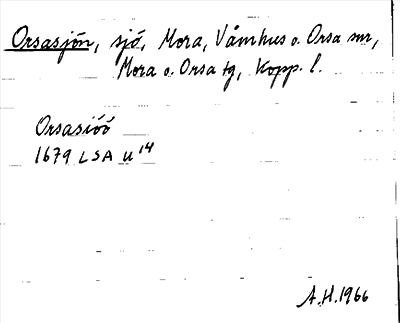 Orsasjön, sjö, Mora, Våmhus o. Orsa snr,
Mora o. Orsa tg, Kopp. l.
Orsasiöö
1679 LSA U¹⁴
A.H. 1966